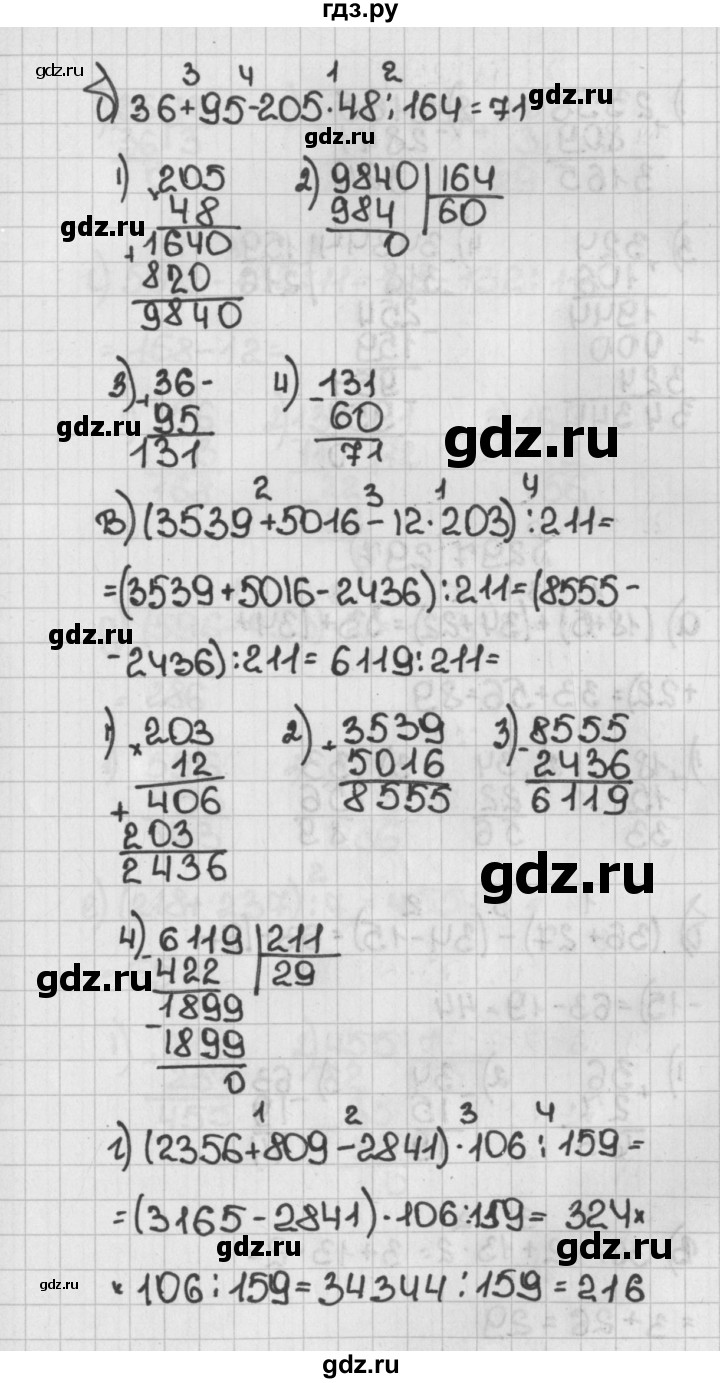 гдз.ру
gdz.ru
3 4 1 2
б) 36+95-205·48:164=71
gdz.ru
gdz.ru
1) × 205
48
+ 1640
820
9840
gdz.ru
2) 9840 | 164
984 | 60
0
3) + 36
95
131
gdz.ru
4) - 131
60
71
gdz.ru
2 3 1 4
в) (3539+5016-12·203):211=
=(3539+5016-2436):211=(8555-
gdz.ru
-2436):211=6119:211=
1) × 203
12
+ 406
203
2436
2) + 3539
5016
8555
3) - 8555
2436
6119
gdz.ru
4) - 6119 | 211
422 | 29
gdz.ru
- 1899
1899
0
1 2 3 4
г) (2356+809-2841)·106:159=
=(3165-2841)·106:159=324×
gdz.ru
gdz.ru
gdz.ru
×106:159=34344:159=216
gdz.ru